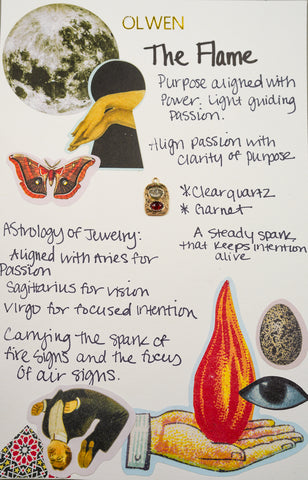 OLWEN
The Flame
Purpose aligned with
Power: Light guiding
passion.
Align passion with
clarity of purpose
*Clearquartz
* Garnet
A steady spark
that keeps intention
alive
Astrology of Jewelry:
Aligned with Aries for
Passion
Sagittarius for vision
Virgo for focused intention
Carrying the spark of
fire signs and the focus
of air signs.